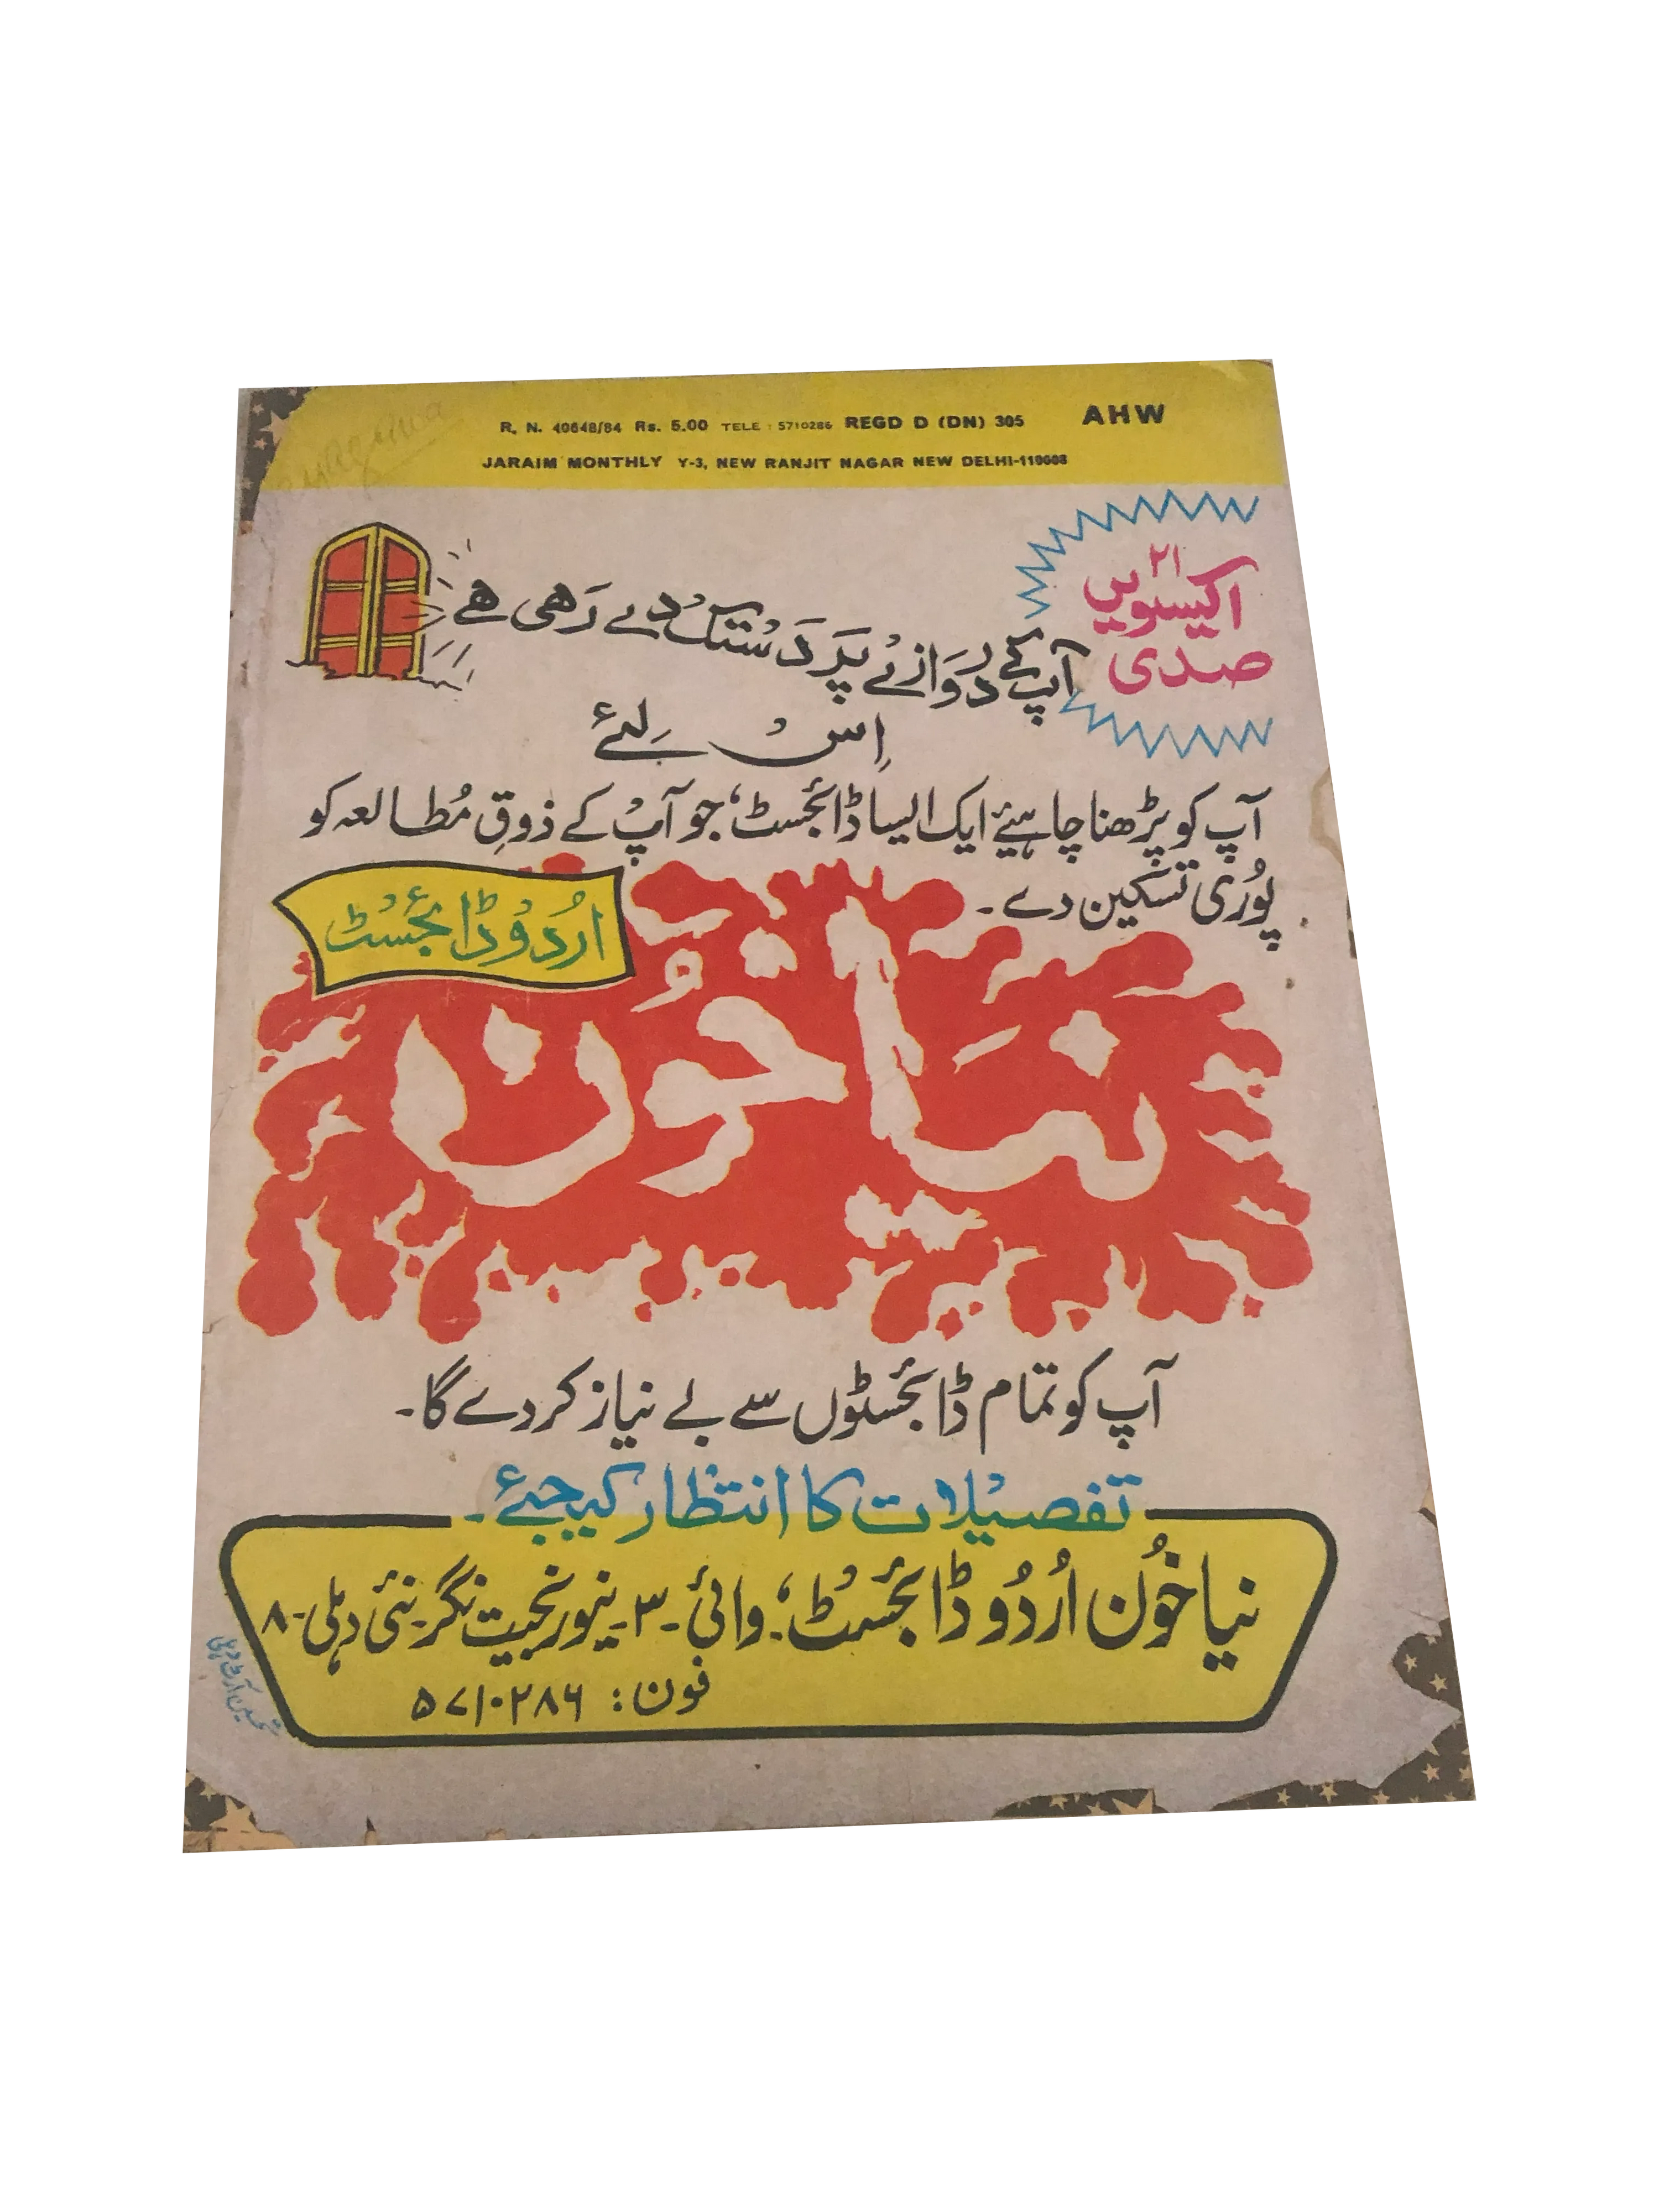 R. N. 40648/84 Rs. 5.00 TELE : 5710286 REGD D (DN) 305 AHW
JARAIM MONTHLY Y-3, NEW RANJIT NAGAR NEW DELHI-110008
۲۱
اکیسویں
صدی
آپ کے دَروَازے پَر دَستک دے رَھی ھے
اِس لِئے
آپ کو پڑھنا چاہیئے ایک ایسا ڈائجسٹ، جو آپ کے ذوقِ مُطالعہ کو
پُوری تسکین دے۔
اردو ڈائجسٹ
نیَا خُون
آپ کو تمام ڈائجسٹوں سے بے نیاز کر دے گا۔
تفصیلات کا انتظار کیجئے۔
نیا خُون اُردُو ڈائجسٹ، وائی۔۳۔ نیو رنجیت نگر۔ نئی دہلی۔۸
فون: ۵۷۱۰۲۸۶